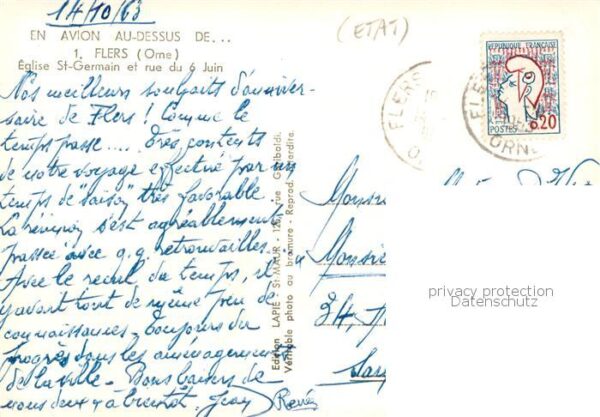 14/10/63
(ETAT)
EN AVION AU-DESSUS DE...
1. FLERS (Orne)
Église St-Germain et rue du 6 Juin
Nos meilleurs souhaits d'anniver-
saire de Flers ! Comme le
temps passe.... Très contents
de notre voyage effectué par un
temps de "saison" très favorable.
La réunion s'est agréablement
passée avec q.q. retrouvailles.
Avec le recul du temps, il
y avait tout de même peu de
connaissances. Toujours du
progrès dans les aménagements
de la ville. Bons baisers de
nous deux, à bientôt, Jean
René
Edition LAPIE - ST-MAUR - rue Garibaldi.
Véritable photo au bromure - Reprod. interdite.
REPUBLIQUE FRANÇAISE
POSTES
0.20
FLERS
FLERS
ORNE
Monsieur
Monsieur
24,
privacy protection
Datenschutz